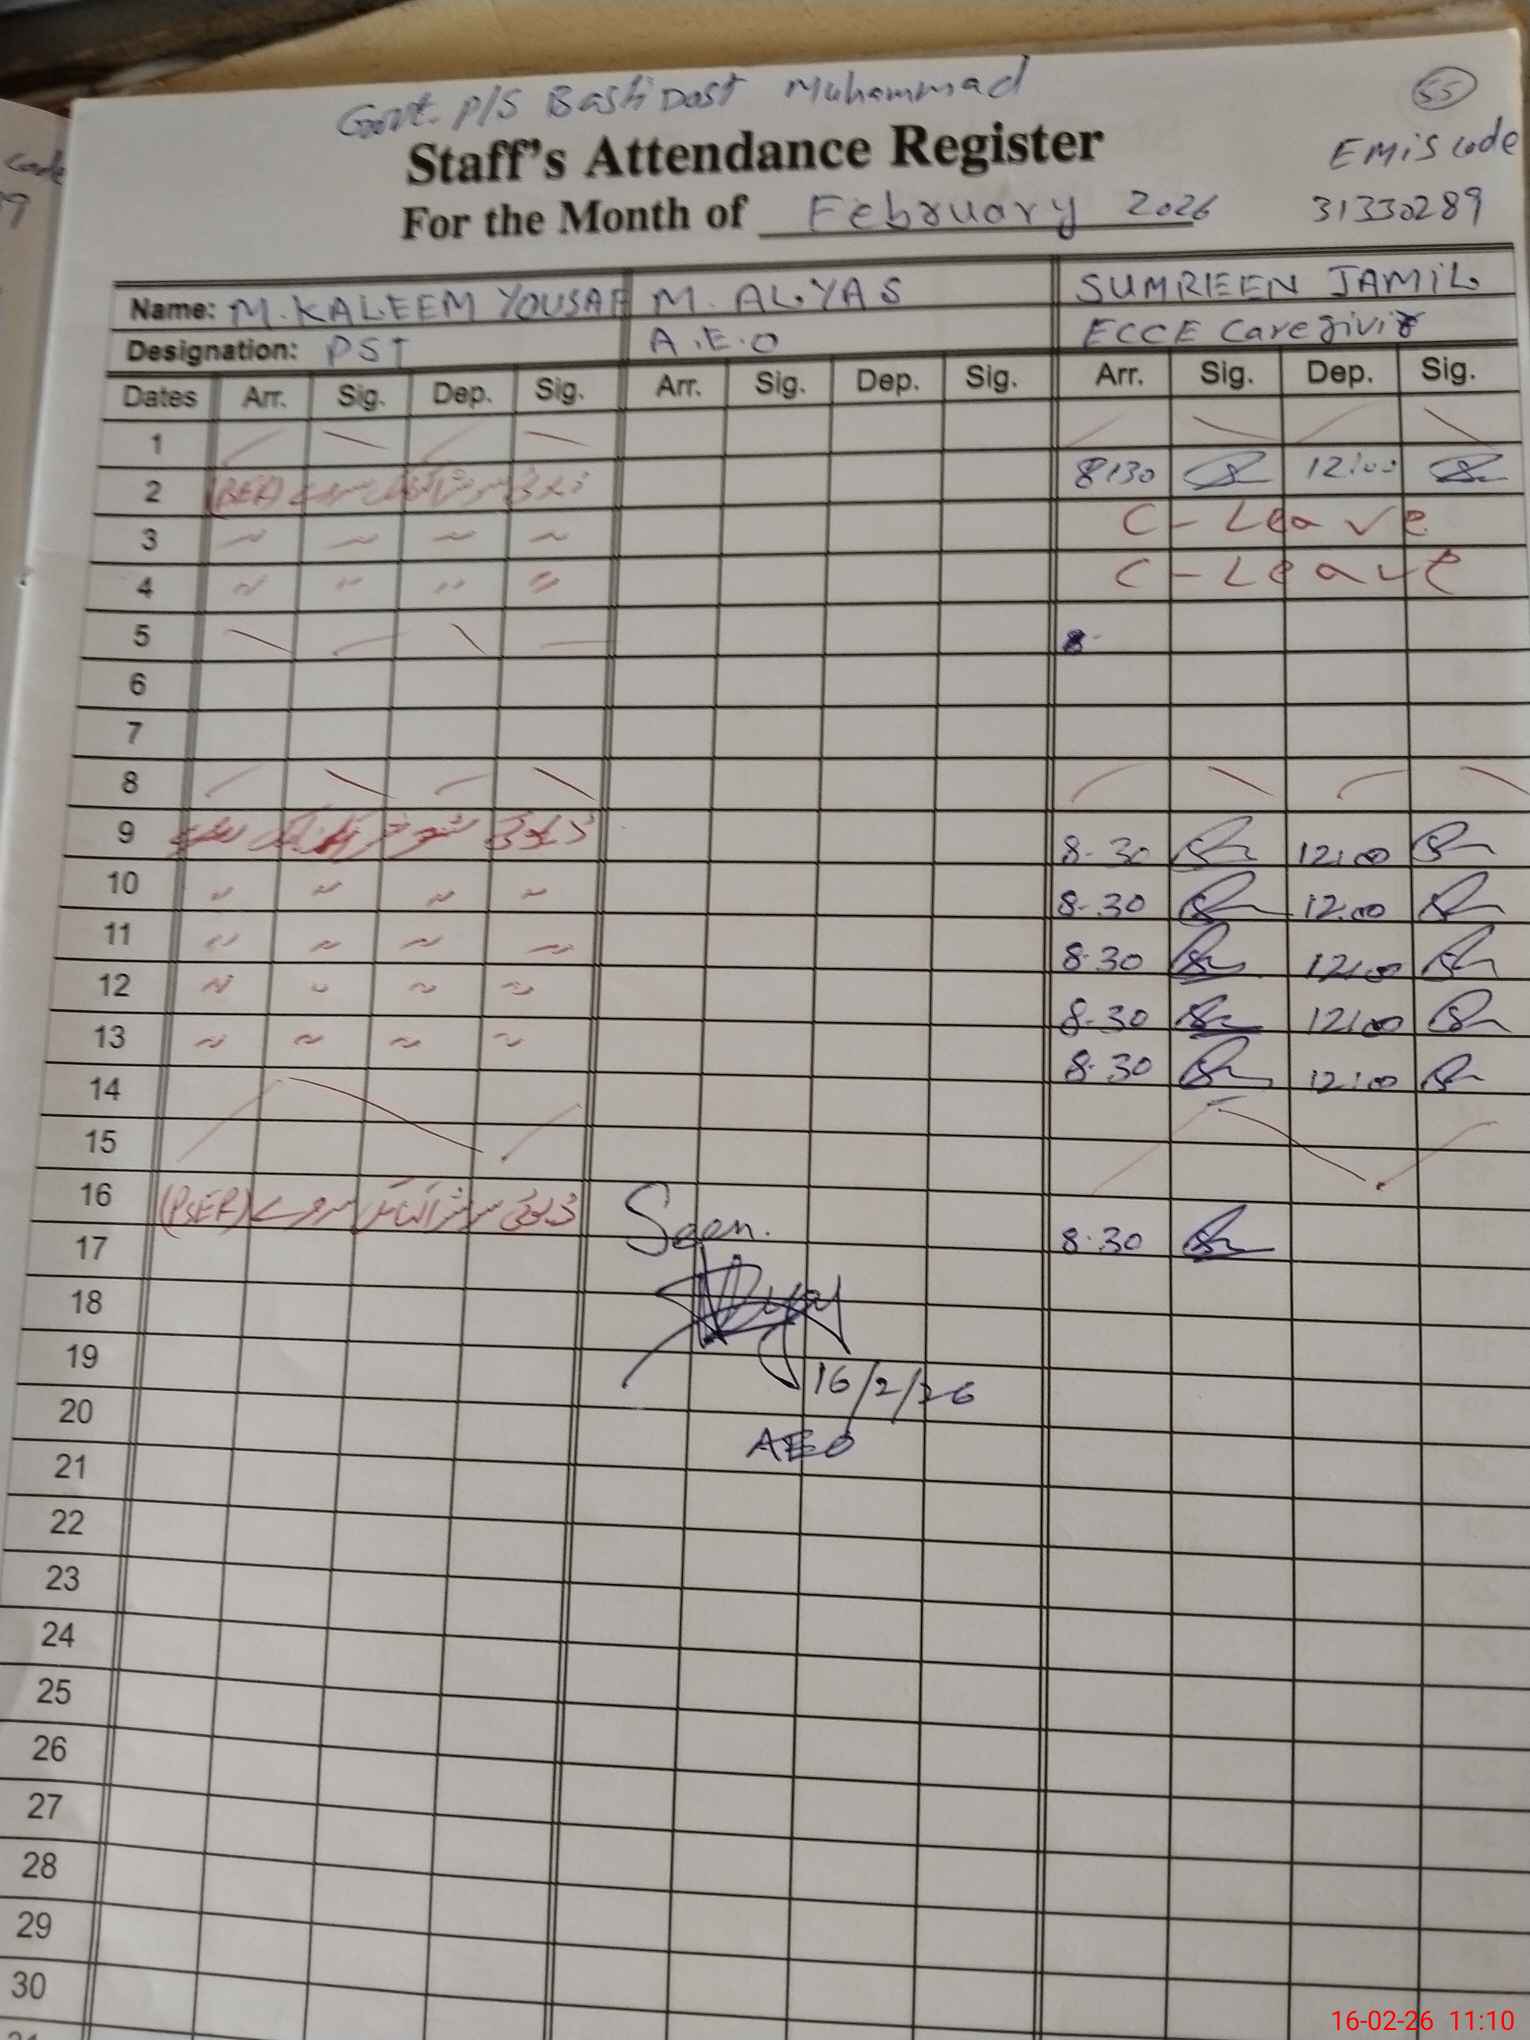 55
Govt. P/S Basti Dost Muhammad
Staff's Attendance Register
EMiS code
For the Month of February 2026 31330289
Name: M. KALEEM YOUSAF M. ALYAS SUMREEN JAMIL
Designation: PST A.E.O ECCE Caregivir
Dates Arr. Sig. Dep. Sig. Arr. Sig. Dep. Sig. Arr. Sig. Dep. Sig.
1
2 8:30 12:00
3 " " " " C-Leave
4 " " " " C-Leave
5 8-
6
7
8
9 8-30 12:00
10 " " " " 8-30 12:00
11 " " " " 8-30 12:00
12 " " " " 8-30 12:00
13 " " " " 8-30 12:00
14
15
16 (PSER) Seen. 8-30
17
18
19 16/2/26
20 AEO
21
22
23
24
25
26
27
28
29
30
16-02-26 11:10